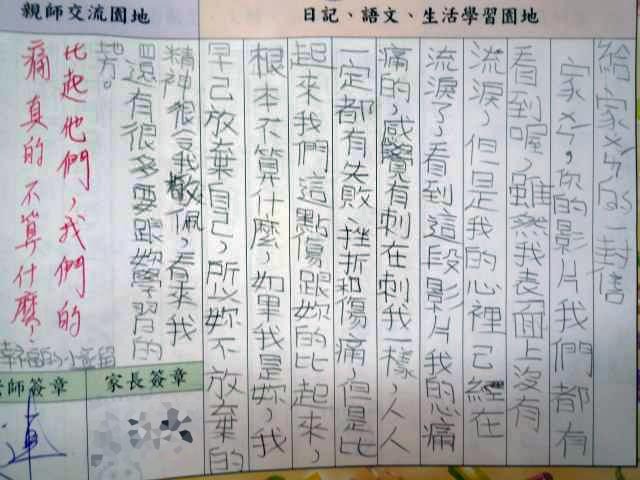 日記、語文、生活學習園地
給家ㄨㄣ的一封信
家ㄨㄣ,你的影片我們都有
看到喔,雖然我表面上沒有
流淚,但是我的心裡已經在
流淚了,看到這段影片我的心痛
痛的,感覺有刺在刺我一樣,人人
一定都有失敗、挫折和傷痛,但是比
起來我們這點傷跟妳的比起來,
根本不算什麼,如果我是妳,我
早已放棄自己,所以妳不放棄的
精神很令我敬佩,看來我
還有很多要跟妳學習的
地方。
親師交流園地
比起他們,我們的
痛真的不算什麼.
家長簽章
師簽章